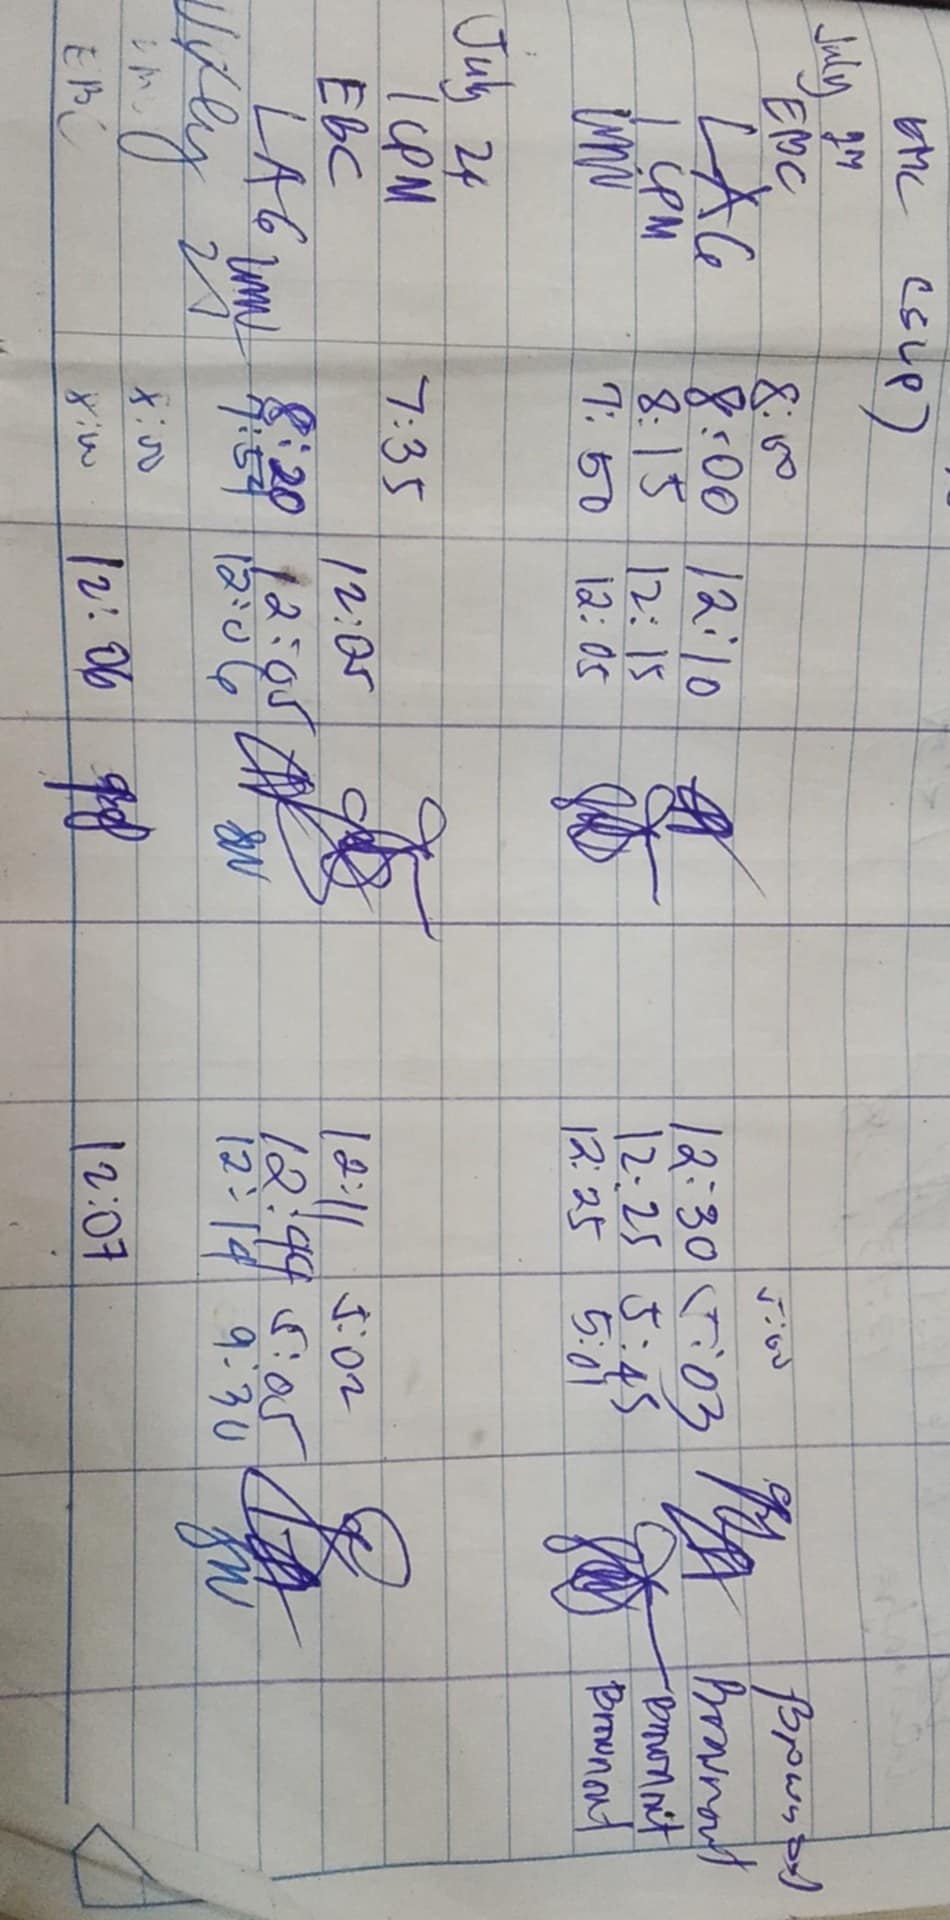 EMC CSUP)
July
EMC 8:00 5:00 Brownout
LAG 8:00 12:10 12:30 5:03 Brownout
LCPM 8:15 12:15 12:25 5:45 Brownout
LMN 7:50 12:05 12:25 5:01 Brownout
July 24
LCPM 7:35
EBC 12:05 12:11 5:02
LAG 8:20 12:05 12:44 5:05
LMN 7:54 12:06 12:14 9:30
July 25
8:00
EBC 8:00 12:06 12:07